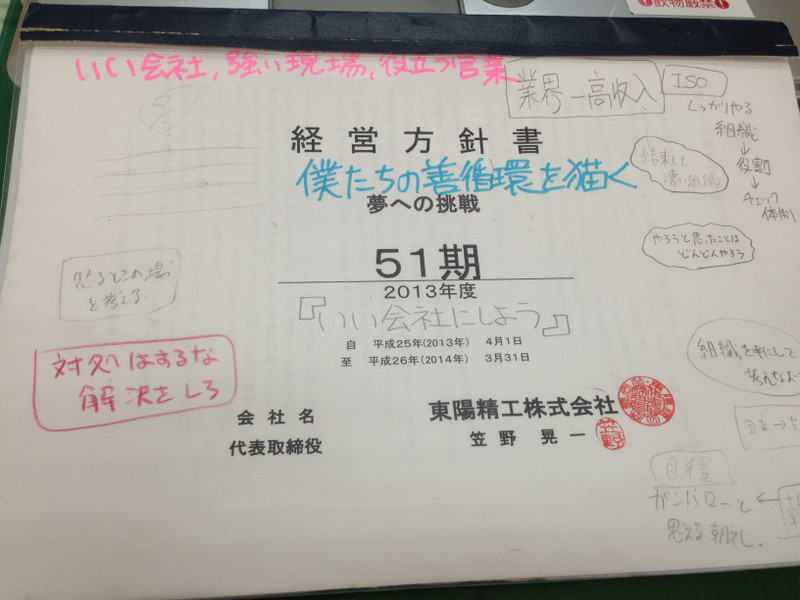 飲物厳禁!
いい会社,強い現場,役立つ営業
業界一高収入
ISO
しっかりやる
組織
↓
役割
↓
チェック
体制
経営方針書
僕たちの善循環を描く
夢への挑戦
結束した
凄い組織
やろうと思ったことは
どんどんやろう
51期
2013年度
『いい会社にしよう』
自 平成25年(2013年) 4月1日
至 平成26年(2014年) 3月31日
を考える
対処はするな
解決をしろ
組織を
会社名 東陽精工株式会社
代表取締役 笠野晃一
目標
ガンバローと
思える朝礼.